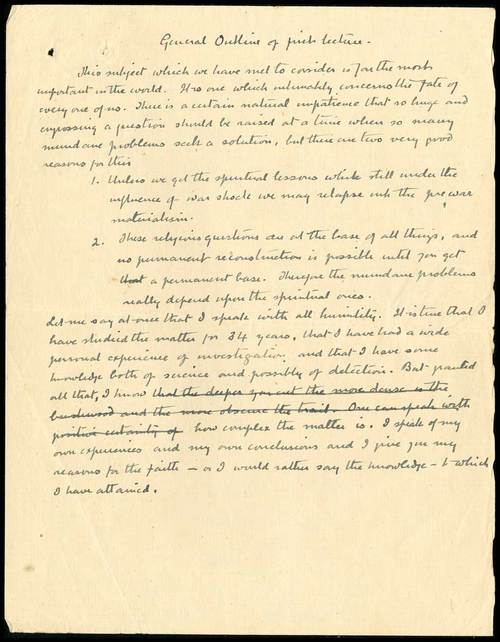 General Outline of first lecture.
This subject which we have met to consider is far the most
important in the world. It is one which intimately concerns the fate of
every one of us. There is a certain natural impatience that so huge and
engrossing a question should be raised at a time when so many
mundane problems seek a solution, but there are two very good
reasons for this
1. Unless we get the spiritual lessons while still under the
influence of war shock we may relapse into the pre war
materialism.
2. These religious questions are at the base of all things, and
no permanent reconstruction is possible until you get
that a permanent base. Therefore the mundane problems
really depend upon the spiritual ones.
Let me say at once that I speak with all humility. It is true that I
have studied the matter for 34 years, that I have had a wide
personal experience of investigation, and that I have some
knowledge both of science and possibly of detection. But granted
all that, I know that the deeper you cut the more dense is the
brushwood and the more obscure the trail. One can speak with
positive certainty of how complex the matter is. I speak of my
own experiences and my own conclusions and I give you my
reasons for the faith – or I would rather say the knowledge – to which
I have attained.